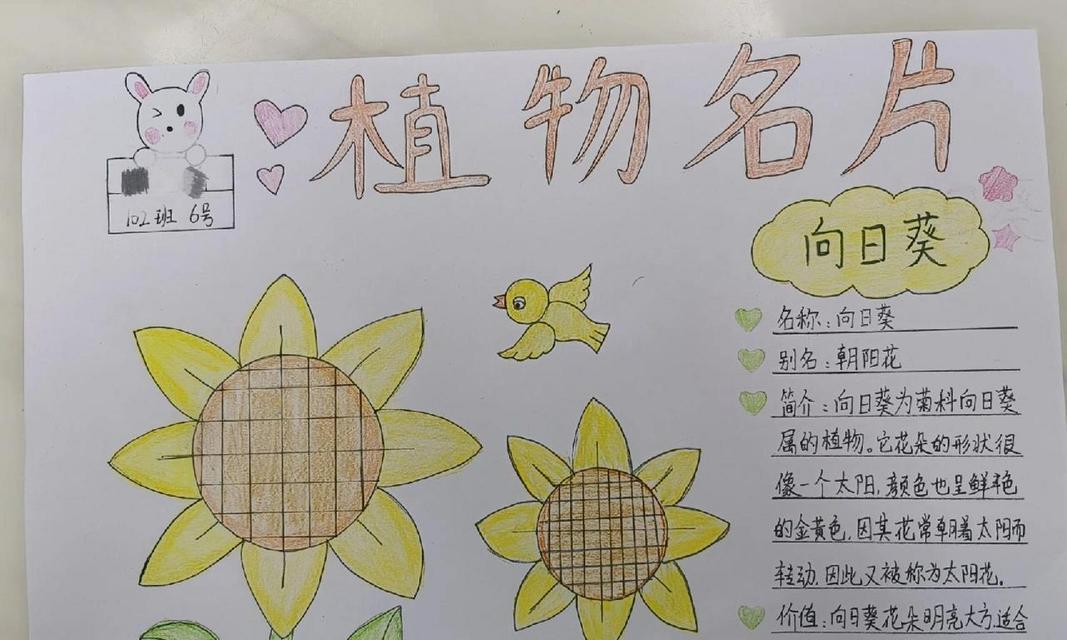 植物名片
102班 6号
向日葵
名称：向日葵
别名：朝阳花
简介：向日葵为菊科向日葵
属的植物。它花朵的形状很
像一个太阳，颜色也呈鲜艳
的金黄色，因其花常朝着太阳而
转动，因此又被称为太阳花。
价值：向日葵花朵明亮大方，适合